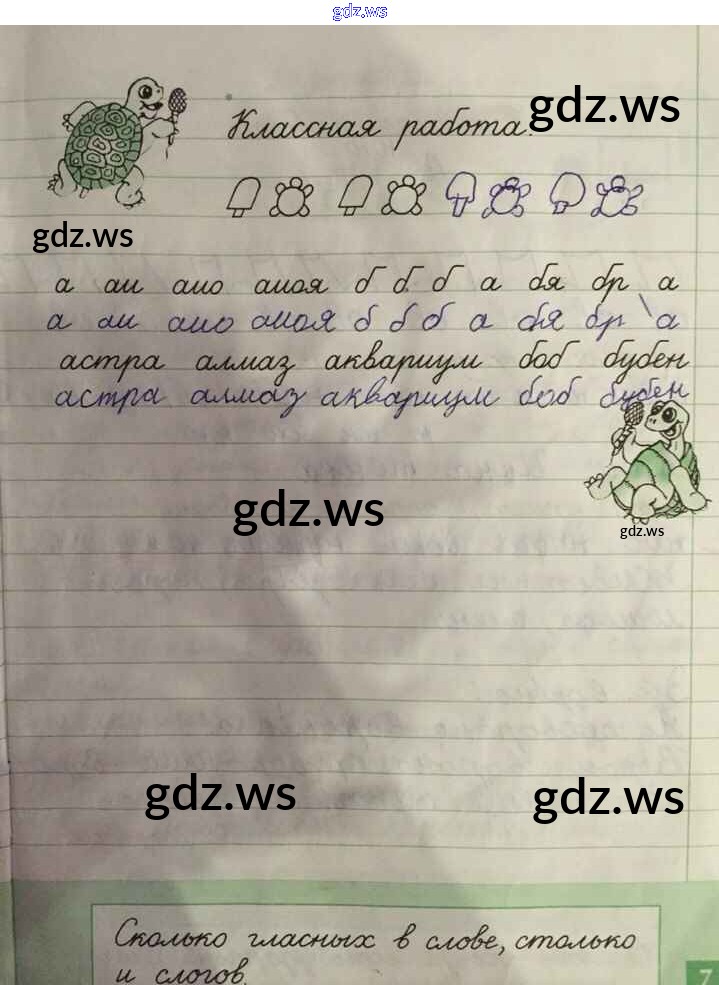 gdz.ws
gdz.ws
Классная работа.
gdz.ws
а аи аио аиоя б б б а бя бр а
а аи аио аиоя б б б а бя бр а
астра алмаз аквариум боб бубен
астра алмаз аквариум боб бубен
gdz.ws
gdz.ws
gdz.ws
gdz.ws
Сколько гласных в слове, столько
и слогов.
7